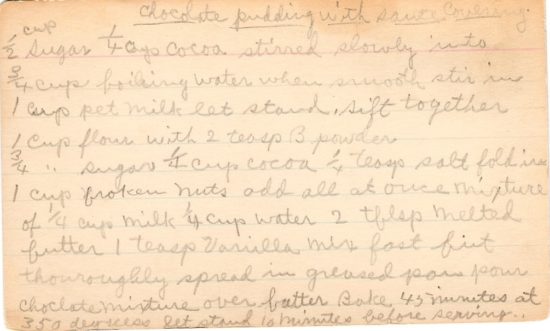 Chocolate pudding with sauce Covering.
1/2 cup Sugar 1/4 cup Cocoa stirred slowly into
3/4 cup boiling water when smooth stir in
1 cup pet milk let stand, sift together
1 Cup flour with 2 teasp B powder
3/4 " sugar 1/4 cup cocoa 1/4 teasp salt fold in
1 cup broken nuts add all at once mixture
of 1/4 cup milk 1/4 cup water 2 tblsp melted
butter 1 teasp Vanilla mix fast but
thouroughly spread in greased pan pour
choclate mixture over batter Bake 45 minutes at
350 degreess let stand 10 minutes before serving..